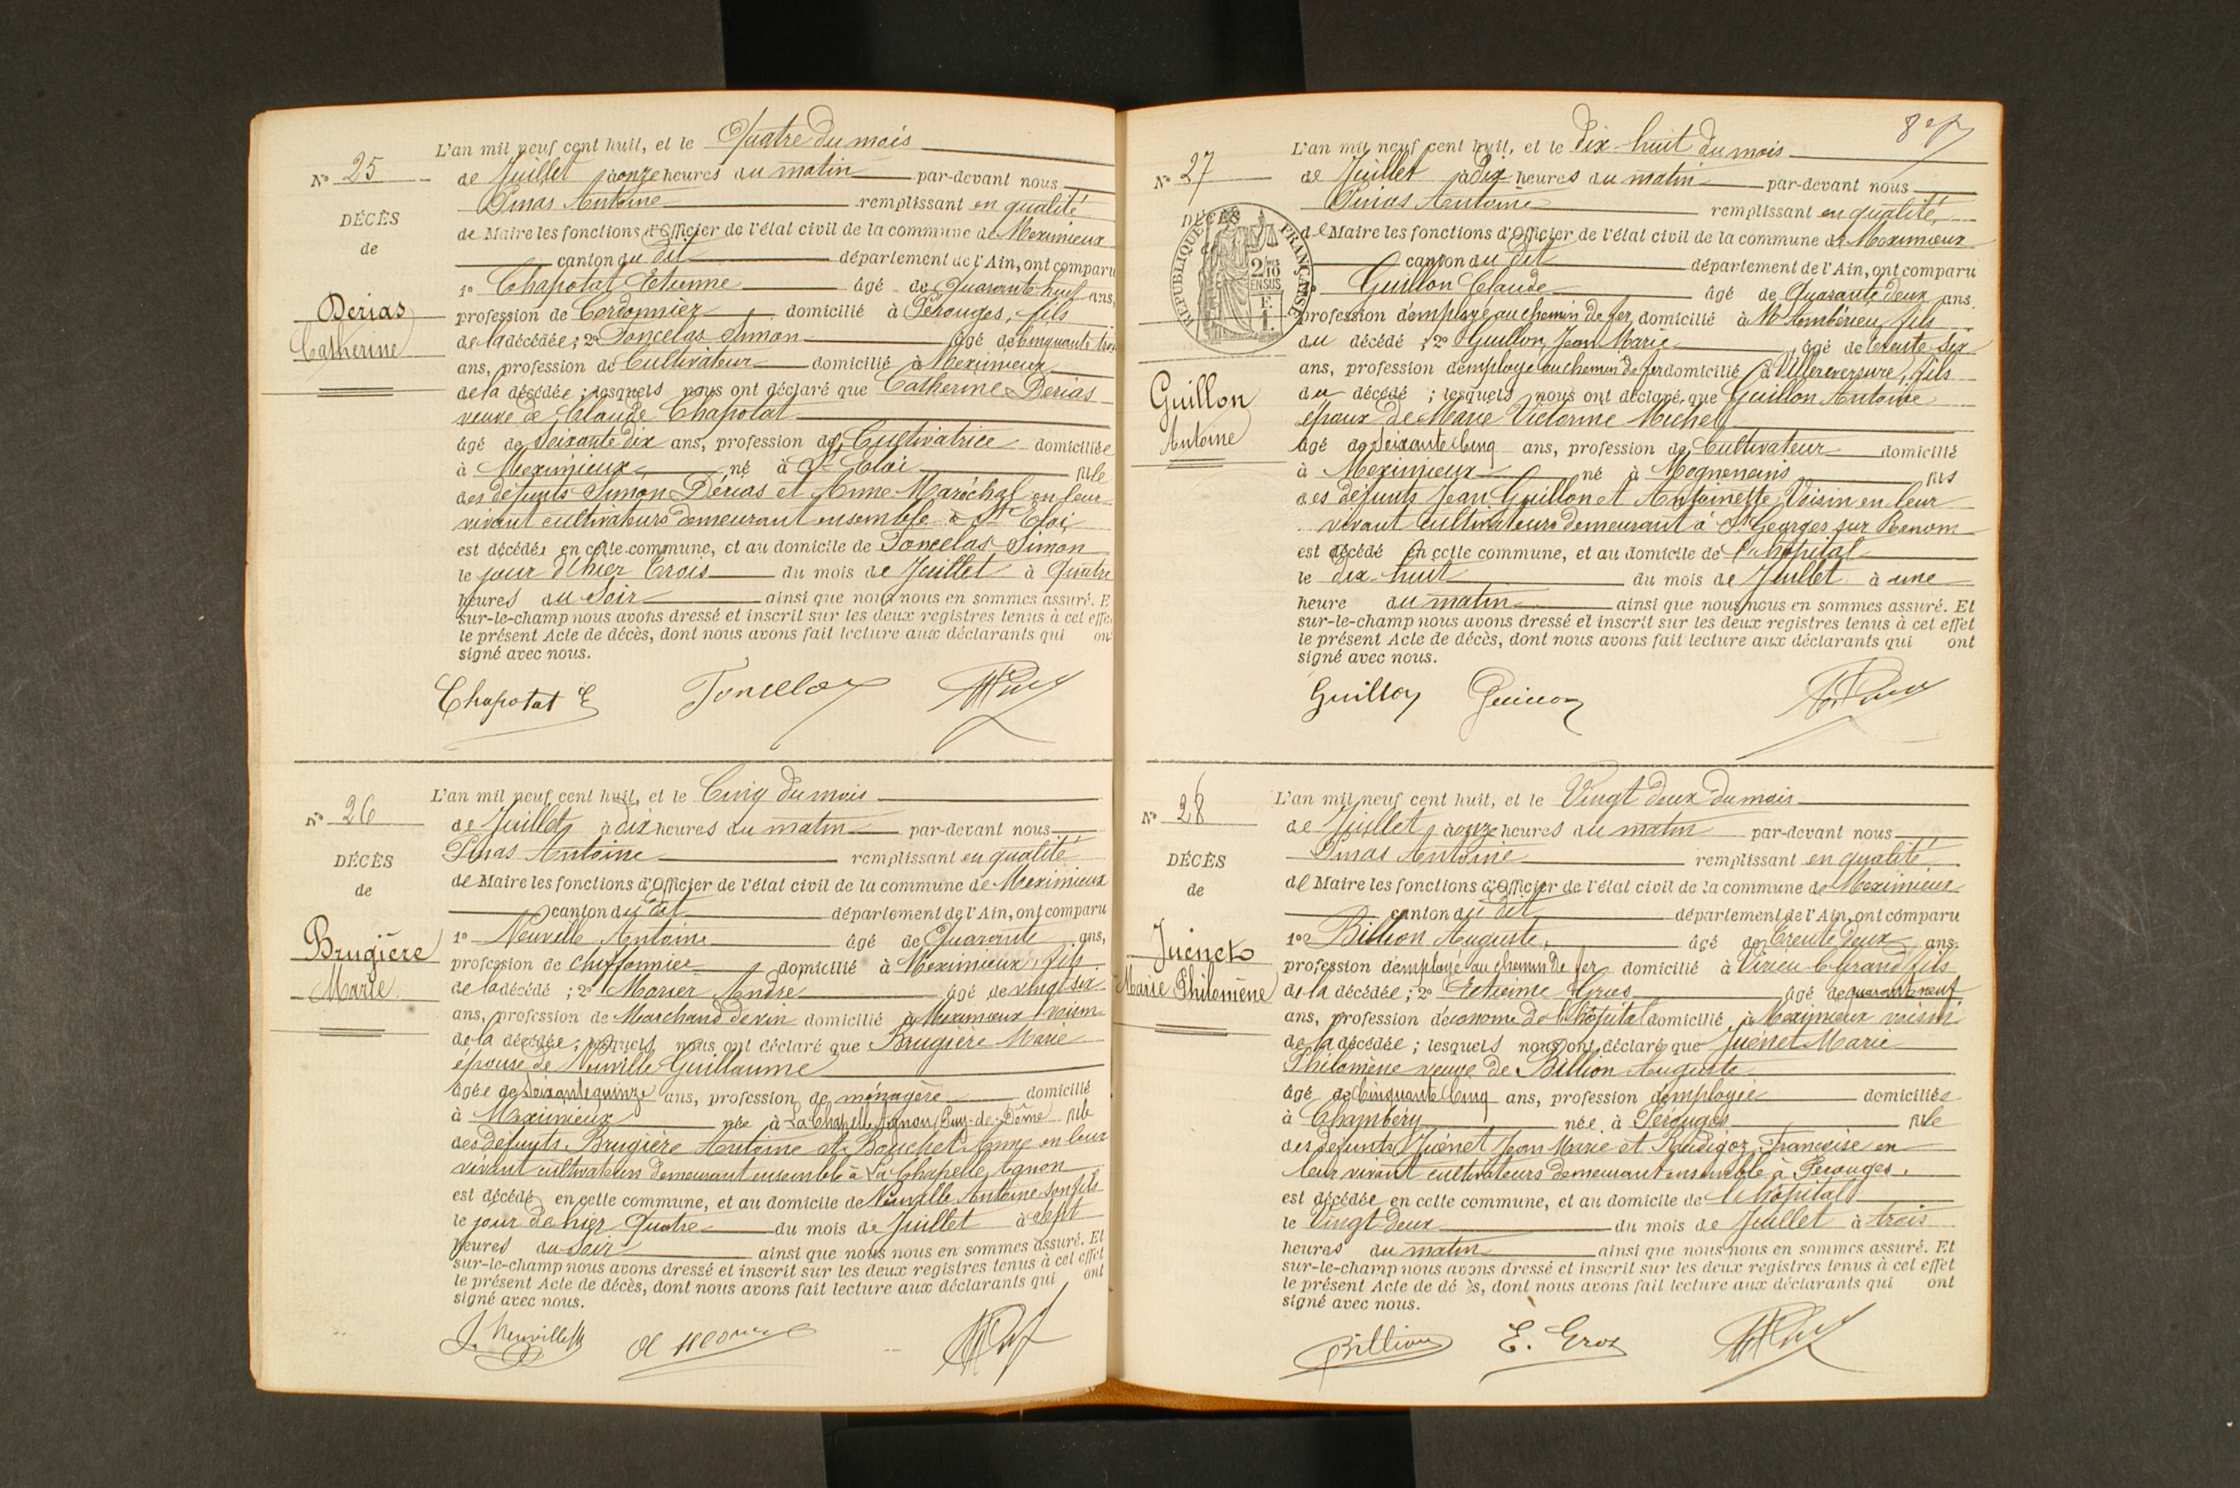 L'an mil neuf cent huit, et le Quatre du mois
N° 25 de Juillet à onze heures du matin par-devant nous
Pinas Antoine remplissant en qualité
DÉCÈS
de Maire les fonctions d'Officier de l'état civil de la commune de Meximieux
de
canton du dit département de l'Ain, ont comparu
1° Chapotat Etienne âgé de Quarante huit ans,
Derias
profession de Cordonnier domicilié à Pérouges, fils
Catherine
de la décédée; 2° Toncelas Simon âgé de Cinquante trois
ans, profession de Cultivateur domicilié à Meximieux
de la décédée; lesquels nous ont déclaré que Catherine Derias
veuve de Claude Chapotat
âgé de Soixante dix ans, profession de Cultivatrice domiciliée
à Meximieux né à St Eloi fille
des défunts Simon Dérias et Anne Maréchal en leur
vivant cultivateurs demeurant ensemble à St Eloi
est décédée en cette commune, et au domicile de Toncelas Simon
le jour d'hier trois du mois de Juillet à Quatre
heures du Soir ainsi que nous nous en sommes assuré. E
sur-le-champ nous avons dressé et inscrit sur les deux registres tenus à cet effet
le présent Acte de décès, dont nous avons fait lecture aux déclarants qui ont
signé avec nous.
Chapotat E Toncelas
L'an mil neuf cent huit, et le Cinq du mois
N° 26 de Juillet à dix heures du matin par-devant nous
Pinas Antoine remplissant en qualité
DÉCÈS
de Maire les fonctions d'Officier de l'état civil de la commune de Meximieux
de
canton du dit département de l'Ain, ont comparu
1° Neuville Antoine âgé de Quarante ans,
Brugière
profession de chiffonnier domicilié à Meximieux, fils
Marie
de la décédé; 2° Morier André âgé de vingt six
ans, profession de Marchand de vin domicilié à Meximieux voisin
de la décédée; lesquels nous ont déclaré que Brugière Marie
épouse de Neuville Guillaume
âgée de Soixante quinze ans, profession de ménagère domicilié
à Meximieux née à La Chapelle Agnon Puy-de-Dôme fille
des défunts Brugière Antoine et Bouchet Anne en leur
vivant cultivateurs demeurant ensemble à La Chapelle Agnon
est décédé en cette commune, et au domicile de Neuville Antoine son fils
le jour d'hier Quatre du mois de Juillet à Sept
heures du Soir ainsi que nous nous en sommes assuré. Et
sur-le-champ nous avons dressé et inscrit sur les deux registres tenus à cet effet
le présent Acte de décès, dont nous avons fait lecture aux déclarants qui ont
signé avec nous.
L'an mil neuf cent huit, et le dix-huit du mois
N° 27 de Juillet à dix heures du matin par-devant nous
Pinas Antoine remplissant en qualité
DÉCÈS
de Maire les fonctions d'Officier de l'état civil de la commune de Meximieux
RÉPUBLIQUE FRANÇAISE
canton du dit département de l'Ain, ont comparu
2/10 EN SUS
Guillon Claude âgé de Quarante deux ans
profession d'employé au chemin de fer domicilié à Ambérieu fils
du décédé; 2° Guillon Jean Marie âgé de trente six
ans, profession d'employé au chemin de fer domicilié à Villereversure, fils
Guillon
du décédé; lesquels nous ont déclaré que Guillon Antoine
Antoine
époux de Marie Victorine Michel
âgé de Soixante cinq ans, profession de Cultivateur domicilié
à Meximieux né à Mogneneins fils
des défunts Jean Guillon et Antoinette Voisin en leur
vivant cultivateurs demeurant à St Georges sur Renom
est décédé en cette commune, et au domicile de l'hôpital
le dix-huit du mois de Juillet à une
heure du matin ainsi que nous nous en sommes assuré. Et
sur-le-champ nous avons dressé et inscrit sur les deux registres tenus à cet effet
le présent Acte de décès, dont nous avons fait lecture aux déclarants qui ont
signé avec nous.
Guillon Guillon
L'an mil neuf cent huit, et le Vingt deux du mois
N° 28 de Juillet à onze heures du matin par-devant nous
Pinas Antoine remplissant en qualité
DÉCÈS
de Maire les fonctions d'Officier de l'état civil de la commune de Meximieux
de
canton du dit département de l'Ain, ont comparu
1° Billion Auguste, âgé de trente deux ans.
Juénet
profession d'employé au chemin de fer domicilié à Virieu le Grand fils
Marie Philomène
de la décédée; 2° Etienne Gros âgé de quarante neuf
ans, profession d'économe de l'hôpital domicilié à Meximieux voisin
de la décédée; lesquels nous ont déclaré que Juénet Marie
Philomène veuve de Billion Auguste
âgé de Cinquante cinq ans, profession d'employée domiciliée
à Chambéry née à Pérouges fille
des défunts Juénet Jean Marie et Rudigoz Françoise en
leur vivant cultivateurs demeurant ensemble à Pérouges.
est décédée en cette commune, et au domicile de l'hôpital
le Vingt-deux du mois de Juillet à trois
heures du matin ainsi que nous nous en sommes assuré. Et
sur-le-champ nous avons dressé et inscrit sur les deux registres tenus à cet effet
le présent Acte de dé ès, dont nous avons fait lecture aux déclarants qui ont
signé avec nous.
Billion E. Gros